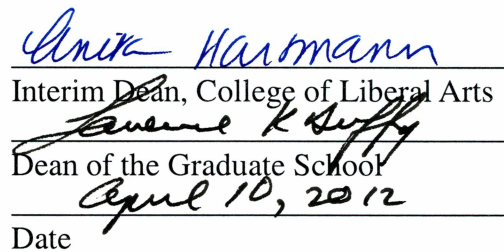 Anita Hartmann
Interim Dean, College of Liberal Arts
Lawrence K Duffy
Dean of the Graduate School
April 10, 2012
Date